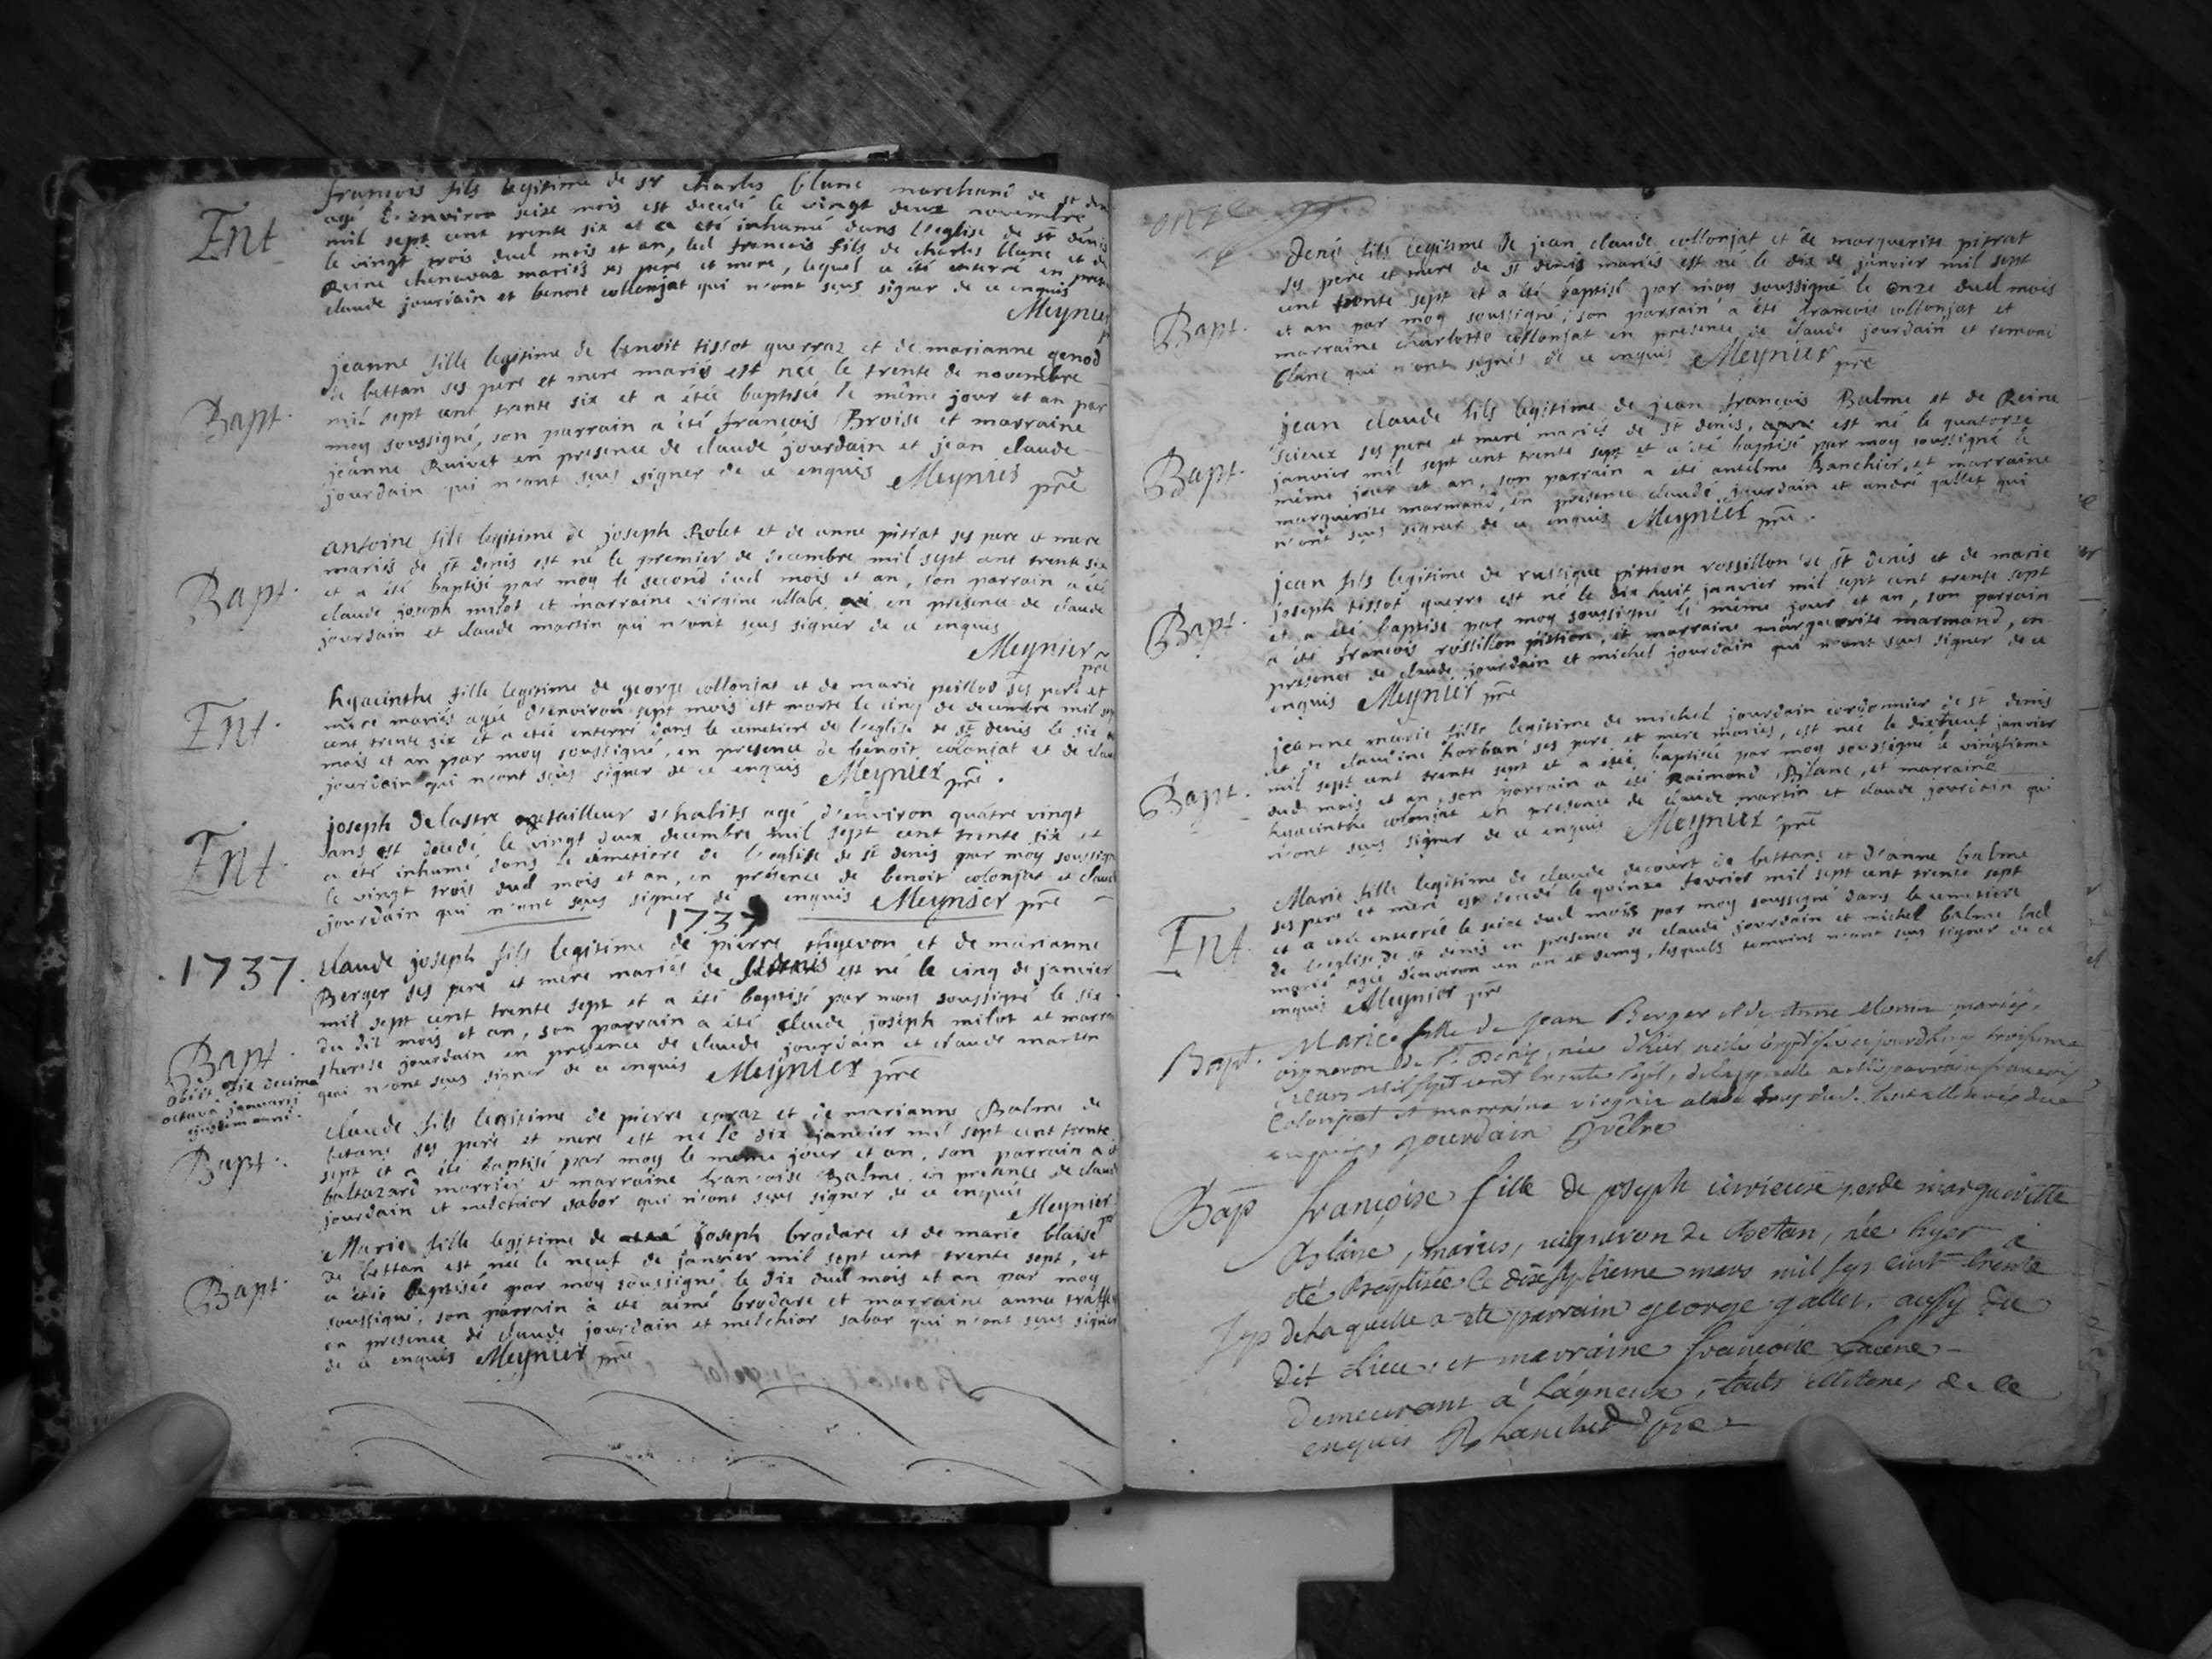 Ent
françois fils legitime de sr charles blanc marchand de st
agé d'environ seize mois est decedé le vingt deux novembre
mil sept cent trente six et a eté inhumé dans l'eglise de st denis
le vingt trois dud mois et an, led françois fils de charles blanc et de
Reine chenavaz mariés ses pere et mere, lequel a été enterré en
claude jourdain et benoit collonjat qui n'ont sçus signer de ce enquis
Meynier
Bapt.
jeanne fille legitime de benoit tissot guerraz et de marianne genod
de bettan ses pere et mere mariés est née le trente de novembre
mil sept cent trente six et a étée baptisée le même jour et an par
moy soussigné, son parrain a été françois Broise et marraine
jeanne Ruivet en presence de claude jourdain et jean claude
jourdain qui n'ont sçus signer de ce enquis Meynier pre
Bapt.
antoine fils legitime de joseph Rolet et de anne pitrat ses pere et mere
mariés de st denis est né le premier de decembre mil sept cent trente six
et a été baptisé par moy le second dud mois et an, son parrain a été
claude joseph milot et marraine virgine allabe en presence de claude
jourdain et claude martin qui n'ont sçus signer de ce enquis
Meynier
pre
Ent.
hyacinthe fille legitime de george collonjat et de marie peillod ses pere et
mere mariés agée d'environ sept mois est morte le cinq de decembre mil
cent trente six et a étée enterré dans le cemetiere de l'eglise de st denis le six
mois et an par moy soussigné, en presence de benoit colonjat et de
jourdain qui n'ont sçus signer de ce enquis Meynier pre.
Ent.
joseph Delastre tailleur d'habits agé d'environ quatre vingt
ans est decedé le vingt deux decembre mil sept cent trente six et
a été inhumé dans le cemetiere de l'eglise de st denis par moy
le vingt trois dud mois et an, en présence de benoit colonjat et
jourdain qui n'ont sçus signer de enquis Meynier pre
1737
1737.
claude joseph fils legitime de pierre thyevon et de marianne
Berger ses pere et mere mariés de st denis est né le cinq de janvier
mil sept cent trente sept et a été baptisé par moy soussigné le six
du dit mois et an, son parrain a été claude joseph milot et
therese jourdain en presence de claude jourdain et claude martin
qui n'ont sçus signer de ce enquis Meynier pre
Bapt.
obiit die decima
octava januarii
ejusdem anni.
Bapt.
claude fils legitime de pierre et de marianne Balme de
betans ses pere et mere est né le dix janvier mil sept cent trente
sept et a été baptisé par moy le meme jour et an, son parrain a
baltazard morrier et marraine françoise Balme, en presence de claude
jourdain et melchior sabor qui n'ont sçus signer de ce enquis
Meynier
Bapt.
Marie fille legitime de joseph brodare et de marie blaise
de bettan est née le neuf de janvier mil sept cent trente sept, et
a étée baptisée par moy soussigné le dix dud mois et an par moy
soussigné, son parrain a été aimé brodare et marraine anne
en presence de claude jourdain et melchior sabor qui n'ont sçus signer
de ce enquis Meynier pre
Bapt.
Denis fils legitime de jean claude collonjat et de marguerite pitrat
ses pere et mere de st denis mariés est né le dix de janvier mil sept
cent trente sept et a été baptisé par moy soussigné le onze dud mois
et an par moy soussigné, son parrain a été francois collonjat et
marraine charlotte collonjat en presence de claude jourdain et
blanc qui n'ont signés de ce enquis Meynier pre
Bapt.
jean claude fils legitime de jean françois Balme et de Reine
ses pere et mere mariés de st denis, est né le quatorze
janvier mil sept cent trente sept et a été baptisé par moy soussigné le
même jour et an, son parrain a été antelme Banchier, et marraine
marguerite marmand, en presence claude jourdain et andré gallet qui
n'ont sçus signer de ce enquis Meynier pre.
Bapt.
jean fils legitime de rustique pittion rossillon de st denis et de marie
joseph tissot guerre est né le dix huit janvier mil sept cent trente sept
et a été baptisé par moy soussigné le même jour et an, son parrain
a été francois rossillon pittion, et marraine marguerite marmand, en
presence de claude jourdain et michel jourdain qui n'ont sçus signer de ce
enquis Meynier pre
Bapt.
jeanne marie fille legitime de michel jourdain cordonnier de st denis
et de claudine horban ses pere et mere mariés, est née le dixneuf janvier
mil sept cent trente sept et a étée baptisée par moy soussigné le vingtieme
dud mois et an, son parrain a été Raimond Blanc, et marraine
hyacinthe colonjat en presence de claude martin et claude jourdain qui
n'ont sçus signer de ce enquis Meynier pre
Ent.
Marie fille legitime de claude decourt de bettans et d'anne balme
ses pere et mere est decedé le quinze fevrier mil sept cent trente sept
et a étée enterrée le seize dud mois par moy soussigné dans le cemetiere
de l'eglise de st denis en presence de claude jourdain et michel balme lad
marie agée d'environ un an et demy, lesquels temoins n'ont sçus signer de ce
enquis Meynier pre
Bapt.
Marie fille de Jean Berger et de Anne mariés,
vigneron de st Denis, née d'hier a été baptisée ce jourdhuy troisieme
mars mil sept cent trente sept, de laquelle a été parrain francois
Colonjat et marraine virginie
enquis, Jourdain Prêtre
Bap
françoise fille de joseph et de margueritte
mariés, vigneron de Betan, née hyer a
été baptisée le dixseptieme mars mil sept cent trente
sept de laquelle a eté parrain george gallet aussy du
dit Lieu, et marraine françoise
demeurant à Lagneux, touts de ce
enquis pre